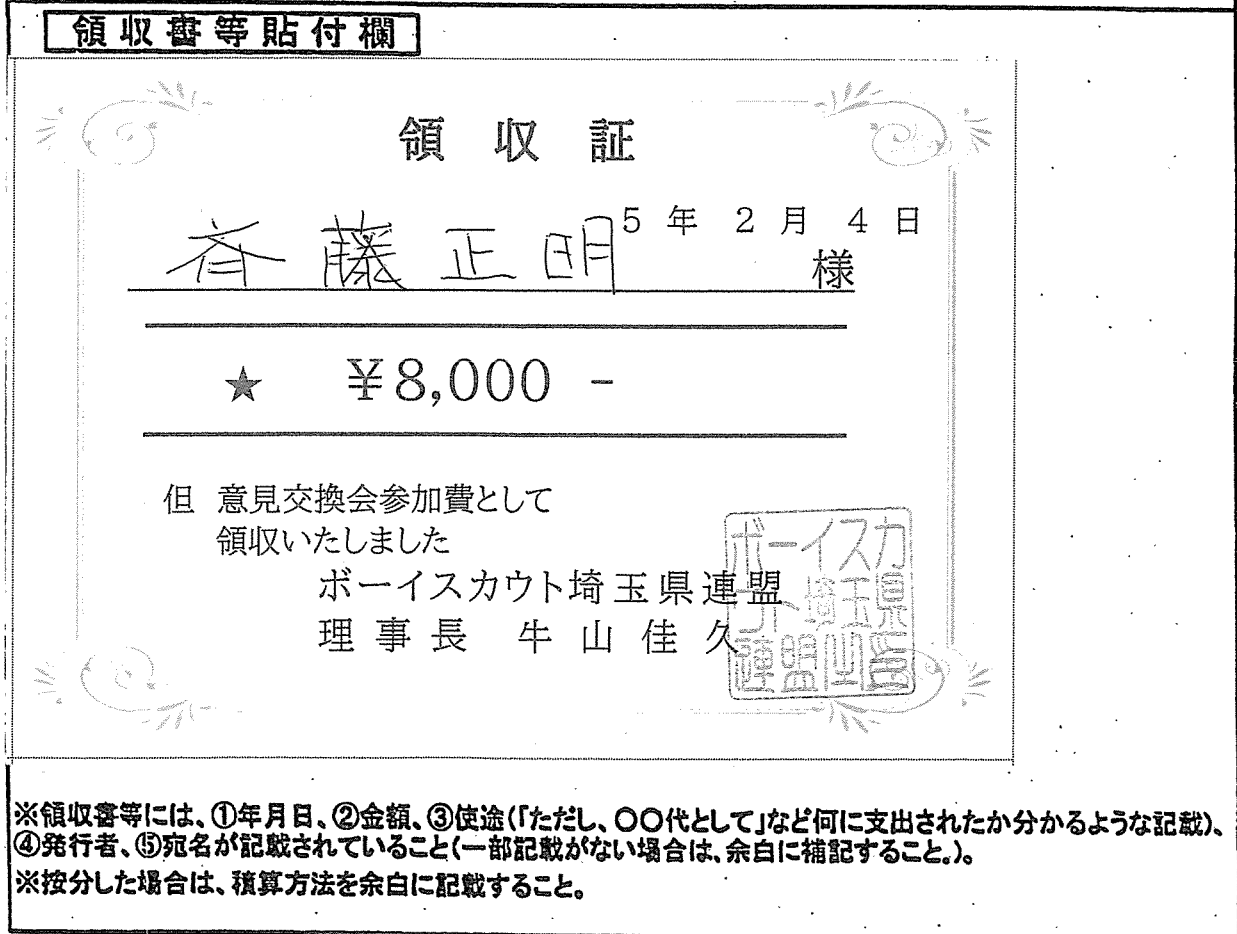 領収書等貼付欄
領収証
5年2月4日
斉藤正明 様
★ ¥8,000 -
但 意見交換会参加費として
領収いたしました
ボーイスカウト埼玉県連盟
理事長 牛山佳久
ボーイスカ
ウト埼玉県
連盟之印
※領収書等には、①年月日、②金額、③使途(「ただし、〇〇代として」など何に支出されたか分かるような記載)、
④発行者、⑤宛名が記載されていること(一部記載がない場合は、余白に補記すること。)。
※按分した場合は、積算方法を余白に記載すること。